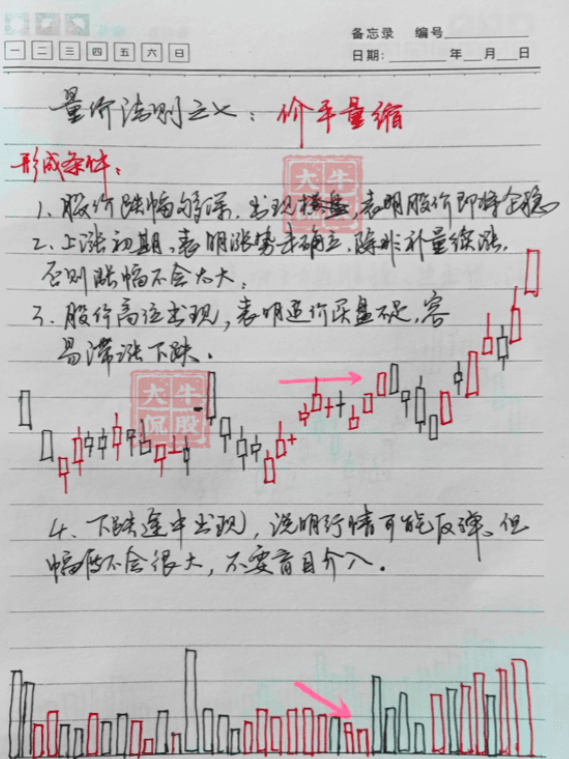 备忘录 编号
一 二 三 四 五 六 日
日期： 年 月 日
量价法则之七：价平量缩
形成条件：
大牛
侃股
1、股价跌幅够深，出现横盘，表明股价即将企稳
2、上涨初期，表明涨势未确立，除非补量续涨，
否则涨幅不会太大；
3、股价高位出现，表明追价买盘不足，容
易滞涨下跌。
大牛
侃股
4、下跌途中出现，说明行情可能反弹，但
幅度不会很大，不要盲目介入。